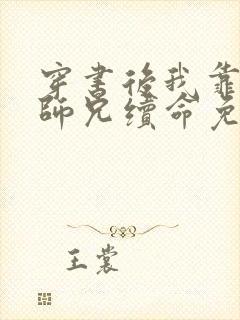 穿書後我靠
師兄續命免
王裳